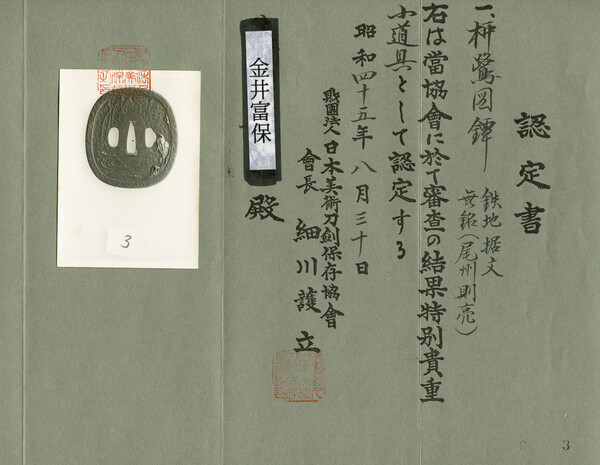 認定書
一、柳鷺図鐔
鉄地 据文
無銘(尾州則亮)
右は當協會に於て審査の結果特別貴重
小道具として認定する
昭和四十五年八月三十日
財團法人日本美術刀劍保存協會
會長 細川護立
金井富保
殿
3
3